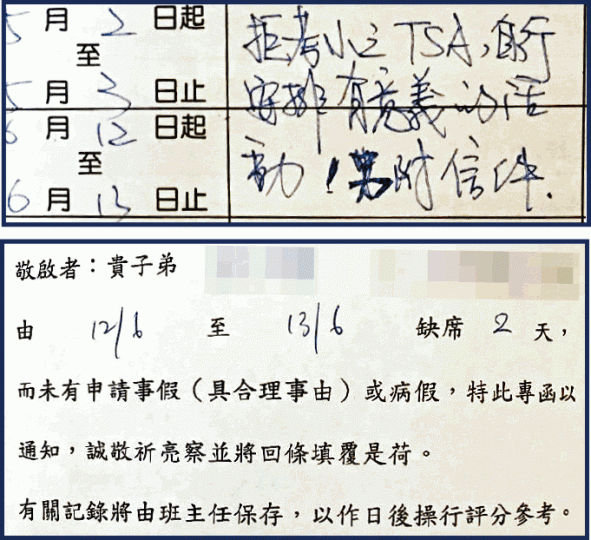 5月2日起 拒考小三TSA,自行
至
5月3日止 安排有意義的活
6月12日起
至 動!另附信件.
6月13日止
敬啟者:貴子弟
由 12/6 至 13/6 缺席 2 天,
而未有申請事假(具合理事由)或病假,特此專函以
通知,誠敬祈亮察並將回條填覆是荷。
有關記錄將由班主任保存,以作日後操行評分參考。